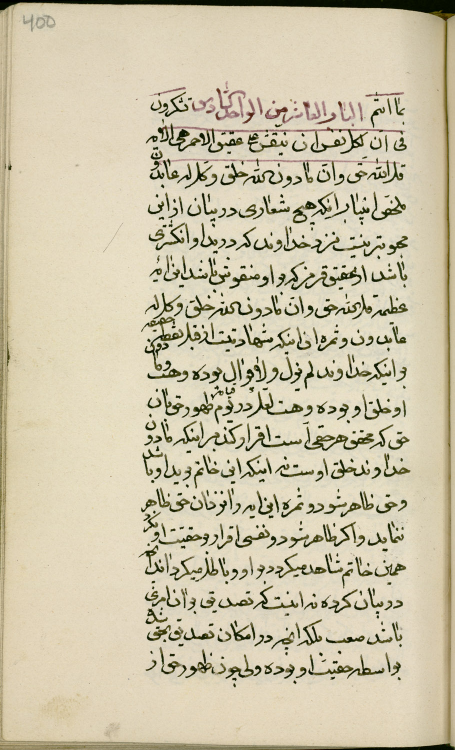 400
ما انتم الباب العاشر من الواحد السادس تذکرون
فی ان لکل نفس ان ینقش علی عقیق الاحمر هی الایه
قل الله حق وان ما دون الله خلق وکل له عابدون
ملخص اینباب انکه هیچ شعاری در بیان از این
محبوبتر نیست نزد خداوند که در ید او انگشتری
باشد از عقیق قرمز که بر او منقوش باشد این ایه
عظیمه قل الله حق وان ما دون الله خلق وکل له
عابدون و ثمره ان اینکه شهادتیست از قبل نقطه حقیقت
بر اینکه خداوند لم یزل ولا یزال بوده وهست وما دون
او خلق او بوده وهست لعل در یوم قیامة ظهور حق بان
حق که محقق هر حقی است اقرار کند بر اینکه ما دون
خداوند خلق اوست نه اینکه این خاتم بر ید او باشد
وحق ظاهر شود و ثمره این ایه را نزد ان حق ظاهر
ننماید واگر ظاهر شود و نفسی اقرار بر حقیت او نکند
همین خاتم شاهد میگردد بر او و باطل میگرداند انچه
در بیان کرده نه اینست که تصدیق بر ان امری
باشد صعب بلکه انچه در امکان تصدیق بحق شده
بواسطه حقیت او بوده ولی چون ظهور حق از